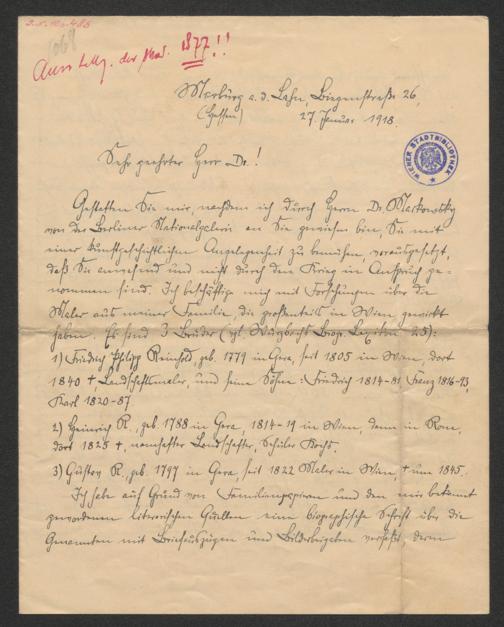 Ausstellg. der Akad. 1877!!
Marburg a. d. Lahn, Biegenstraße 26,
(Hessen) 27. Januar 1918.
WIENER STADTBIBLIOTHEK
Sehr geehrter Herr Dr.!
Gestatten Sie mir, nachdem ich durch Herrn Dr. Markowsky
von der Berliner Nationalgalerie an Sie gewiesen bin, Sie mit
einer kunstgeschichtlichen Angelegenheit zu bemühen, vorausgesetzt,
daß Sie anwesend und nicht durch den Krieg in Anspruch ge-
nommen sind. Ich beschäftige mich mit Forschungen über die
Maler aus meiner Familie, die großenteils in Wien gewirkt
haben. Es sind 3 Brüder (vgl. Wurzbachs Biogr. Lexikon 25):
1) Friedrich Philipp Reinhold, geb. 1779 in Gera, seit 1805 in Wien, dort
1840 † Landschaftsmaler, und seine Söhne: Friedrich 1814-81 Franz 1816-93,
Karl 1820-87
2) Heinrich R., geb. 1788 in Gera, 1814-19 in Wien, dann in Rom,
dort 1825 †, namhafter Landschafter, Schüler Kochs.
3) Gustav R., geb. 1797 in Gera, seit 1822 Maler in Wien, † um 1845.
Ich habe auf Grund von Familienpapieren und den mir bekannt
gewordenen literarischen Quellen eine biographische Schrift über die
Genannten mit Briefauszügen und Bilderbeigaben verfaßt, deren